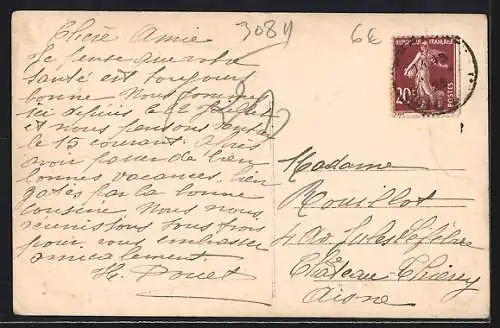 3084
6E
REPUBLIQUE FRANÇAISE
20c
POSTES
Chère Amie
Je pense que votre
santé est toujours
bonne Nous sommes
ici depuis le 22 Juillet
et nous pensons rentrer
le 15 courant. Après
avoir passer de bien
bonnes vacances, bien
gatés par la bonne
cousine Nous nous
réunissons tous trois
pour vous embrasser
amicalement
H. Douet
Madame
Rouillot
4 Av. Jules Lefèbvre
Château-Thierry
Aisne